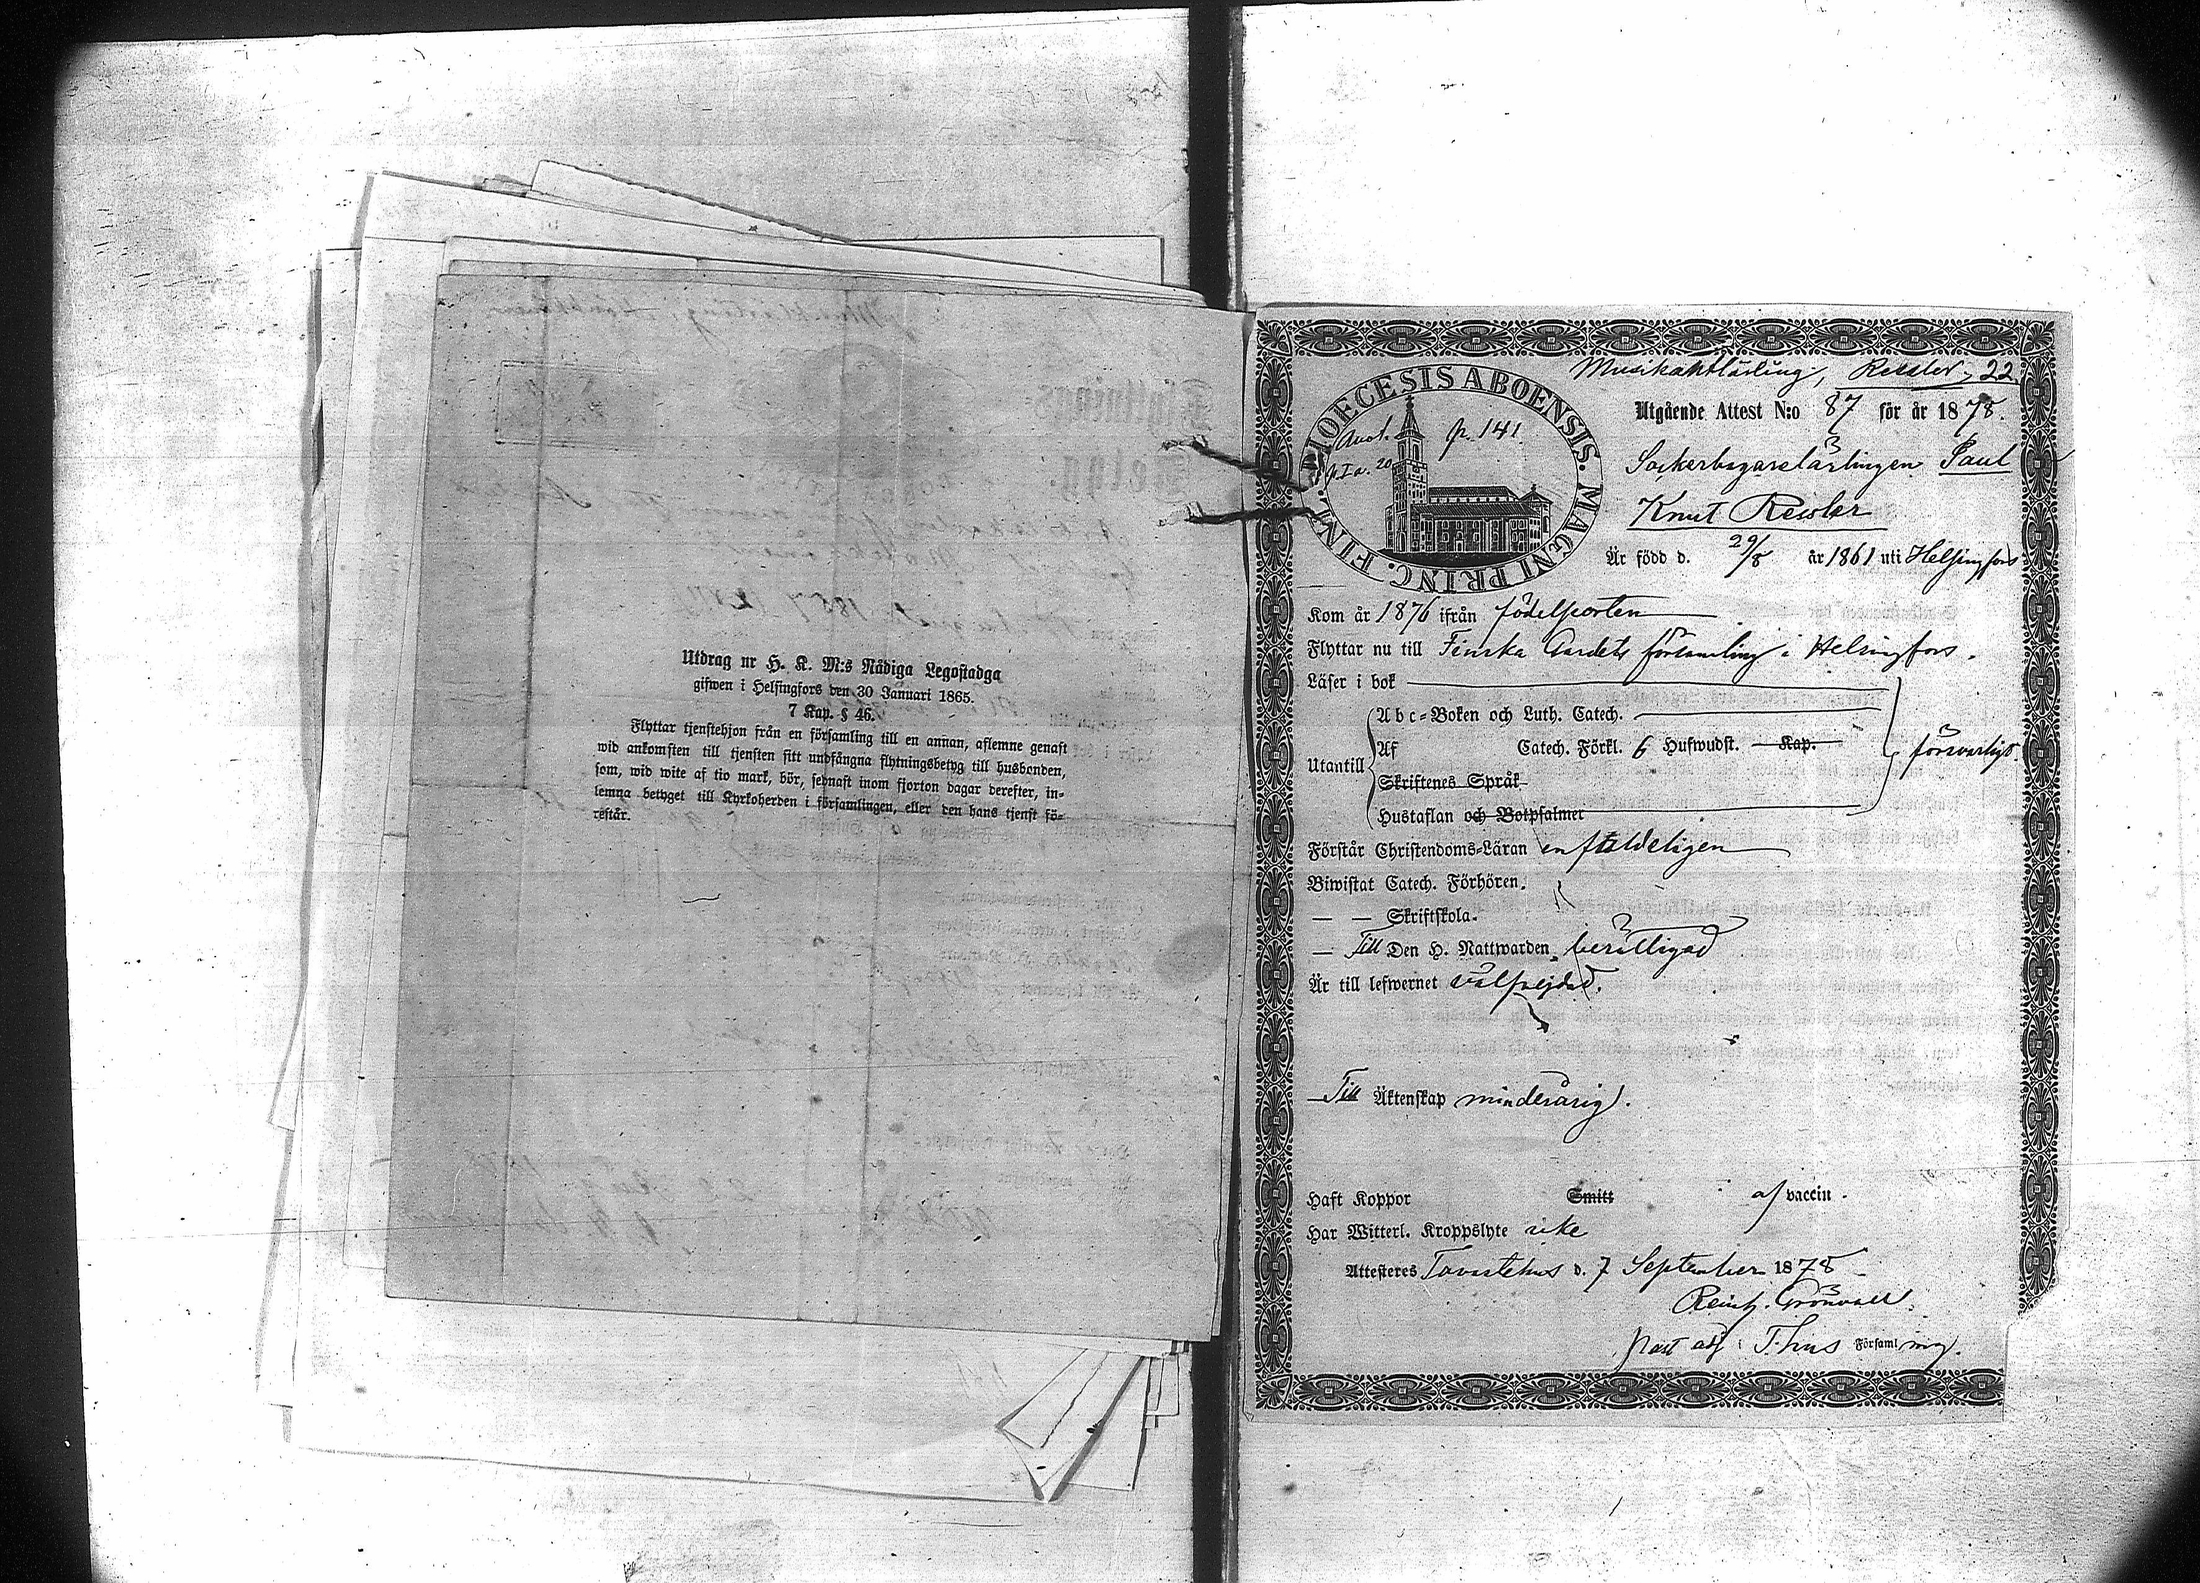 Utdrag ur H. K. M:s Nådiga Legostadga
gifwen i Helsingfors den 30 Januari 1865.
7 Kap. § 46.
Flyttar tjenstehjon från en församling till en annan, aflemne genast
wid ankomsten till tjensten sitt undfångna flytningsbetyg till husbonden,
som, wid wite af tio mark, bör, sednast inom fjorton dagar derefter, in-
lemna betyget till Kyrkoherden i församlingen, eller den hans tjenst fö-
restår.
Musikantlärling, Ressler, 22.
DIOECESIS ABOENSIS. MAGNI PRINC. FINL.
Anot. p. 141.
Utgående Attest N:o 87 för år 1878.
Sockerbagarelärlingen Paul
Knut Ressler
Är född d. 29/8 år 1861 uti Helsingfors
Kom år 1876 ifrån födelseorten
Flyttar nu till Finska Gardets församling i Helsingfors.
Läser i bok
Utantill
Abc-Boken och Luth. Catech.
Af Catech. Förkl. 6 Hufwudst. Kap.
försvarligt.
Skriftenes Språk
Hustaflan och Botpsalmer
Förstår Christendoms-Läran enfaldeligen
Biwistat Catech. Förhören.
— — Skriftskola.
— Till Den H. Nattwarden berättigad
Är till lefwernet välfrejdad.
— Till Äktenskap minderårig.
Haft Koppor Smitt af vaccin.
Har Witterl. Kroppslyte icke
Attesteres Tavastehus d. 7 September 1878
Reinh. Grönvall.
past adj. i T:hus Församling.